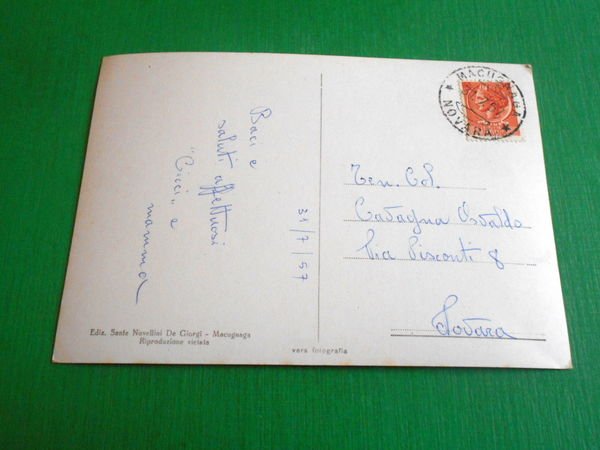 Baci e
saluti affettuosi
"Cicci" e
mamma
31/7/57
MACUGNAGA
* NOVARA *
Ten. Col.
Cavagna Osvaldo
Via Visconti 8
Novara
Ediz. Sante Novellini De Giorgi - Macugnaga
Riproduzione vietata
vera fotografia